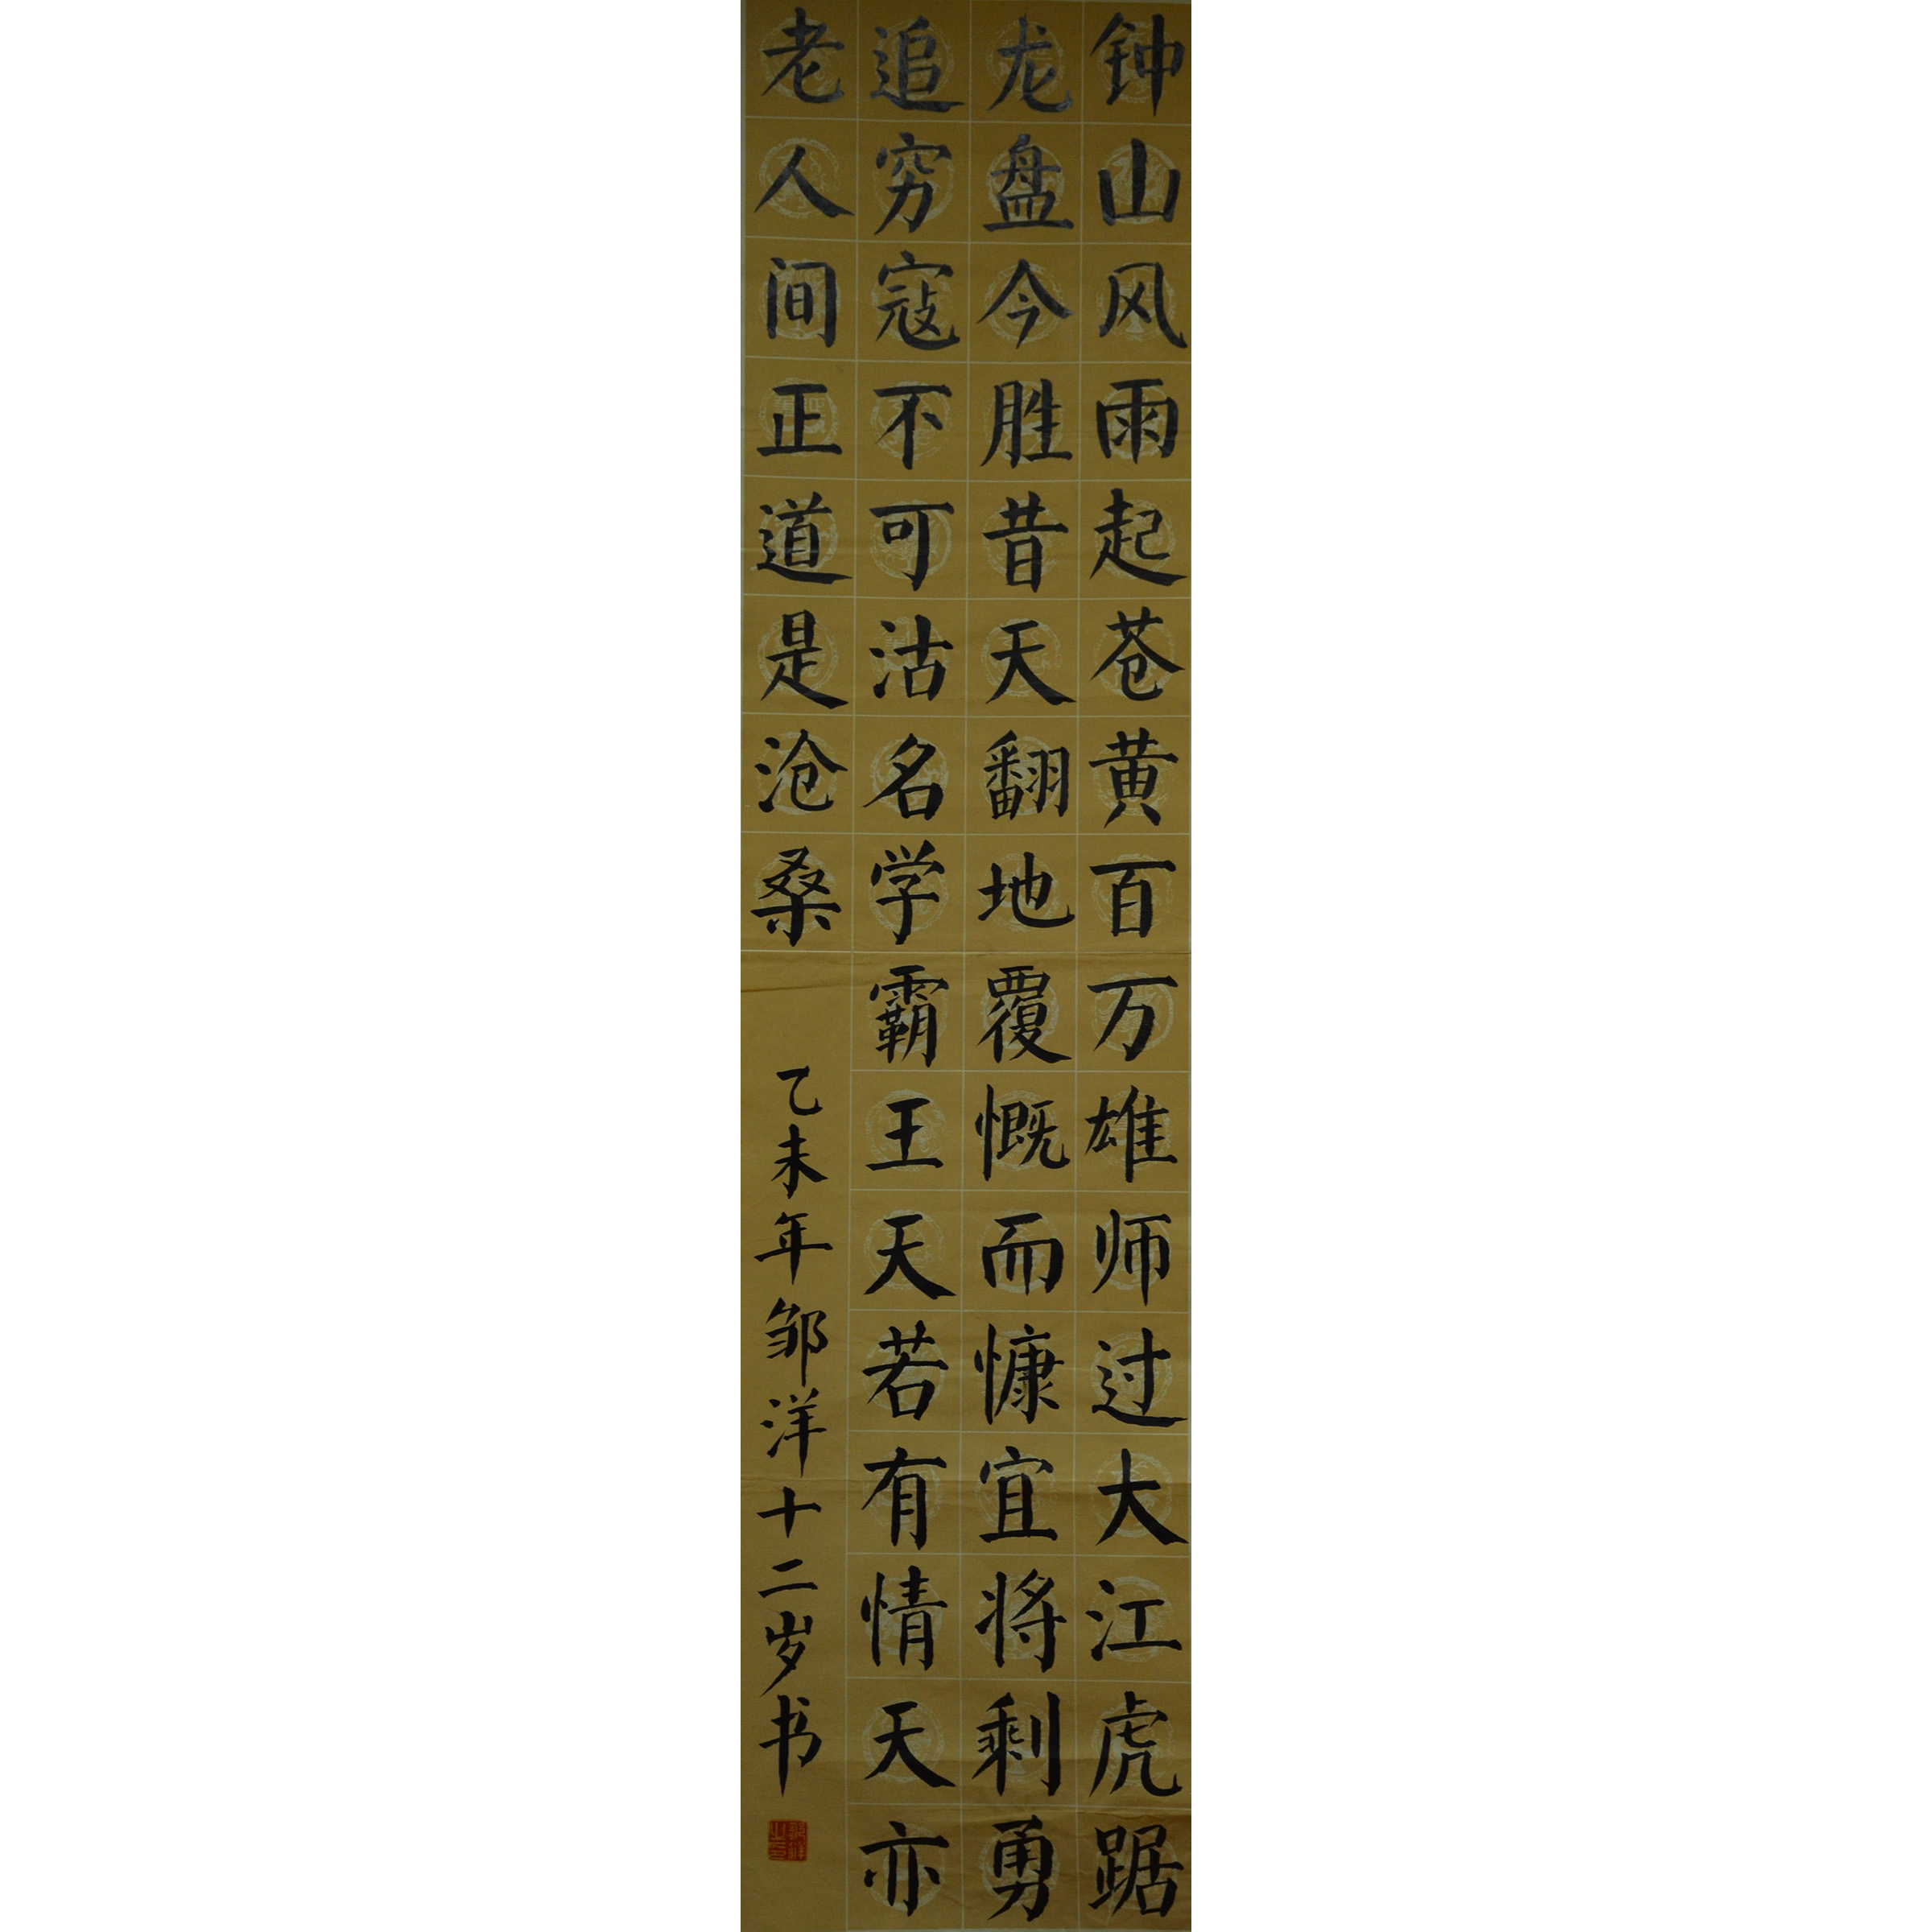 钟山风雨起苍黄百万雄师过大江虎踞
龙盘今胜昔天翻地覆慨而慷宜将剩勇
追穷寇不可沽名学霸王天若有情天亦
老人间正道是沧桑
乙未年邹洋十二岁书